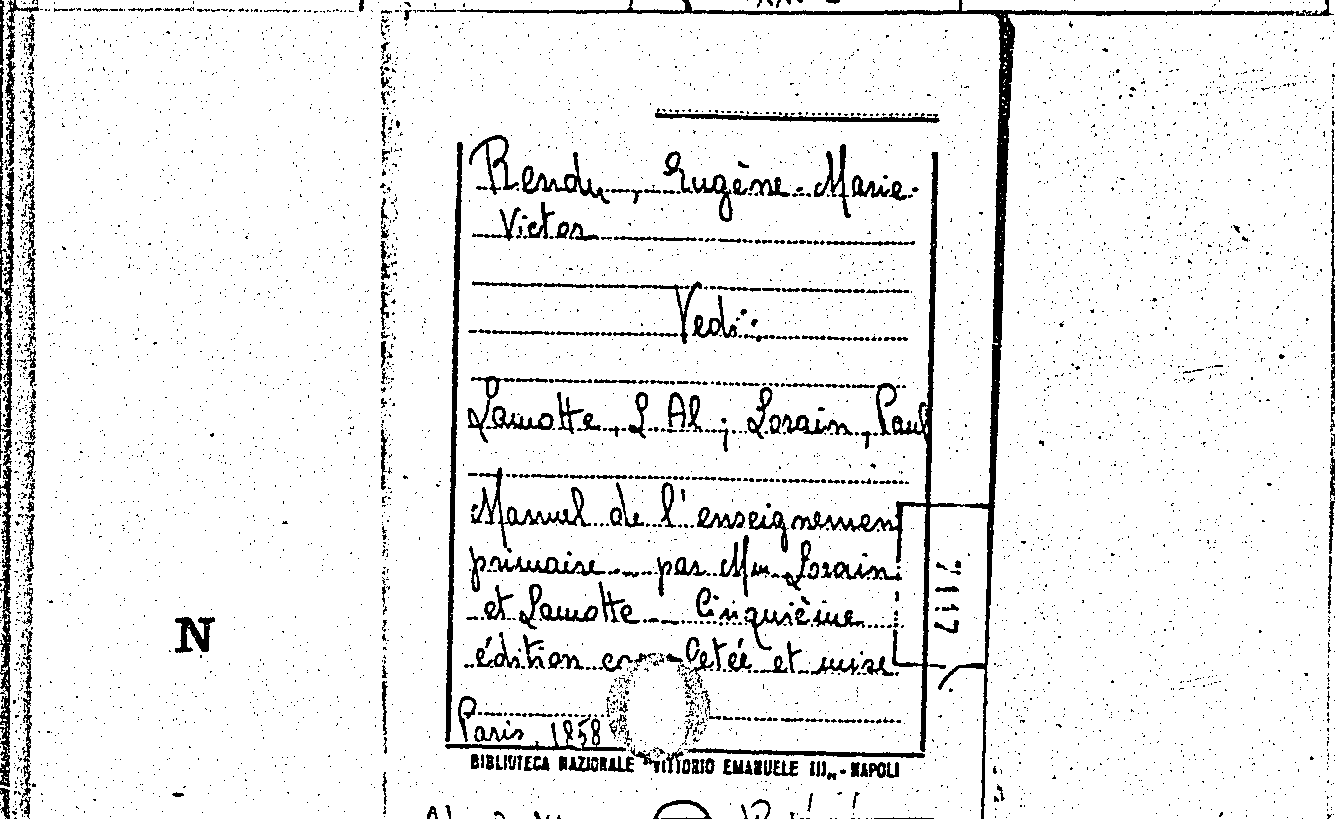 Rendu, Eugène-Marie-
Victor
Vedi:
Lamotte, L. Al ; Lorain, Paul
Manuel de l'enseignement
primaire... par Mm Lorain
et Lamotte... Cinquième
édition et mise
Paris, 1858
BIBLIOTECA NAZIONALE "VITTORIO EMANUELE III„ - NAPOLI
N